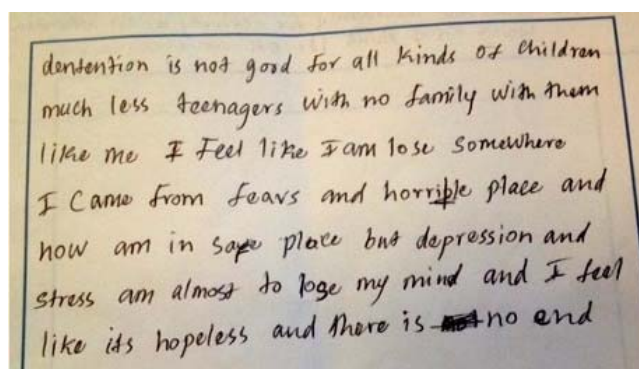 dentention is not good for all kinds of children
much less teenagers with no family with them
like me I Feel like I am lose somewhere
I came from fears and horrible place and
now am in safe place but depression and
stress am almost to lose my mind and I feel
like its hopeless and there is no end